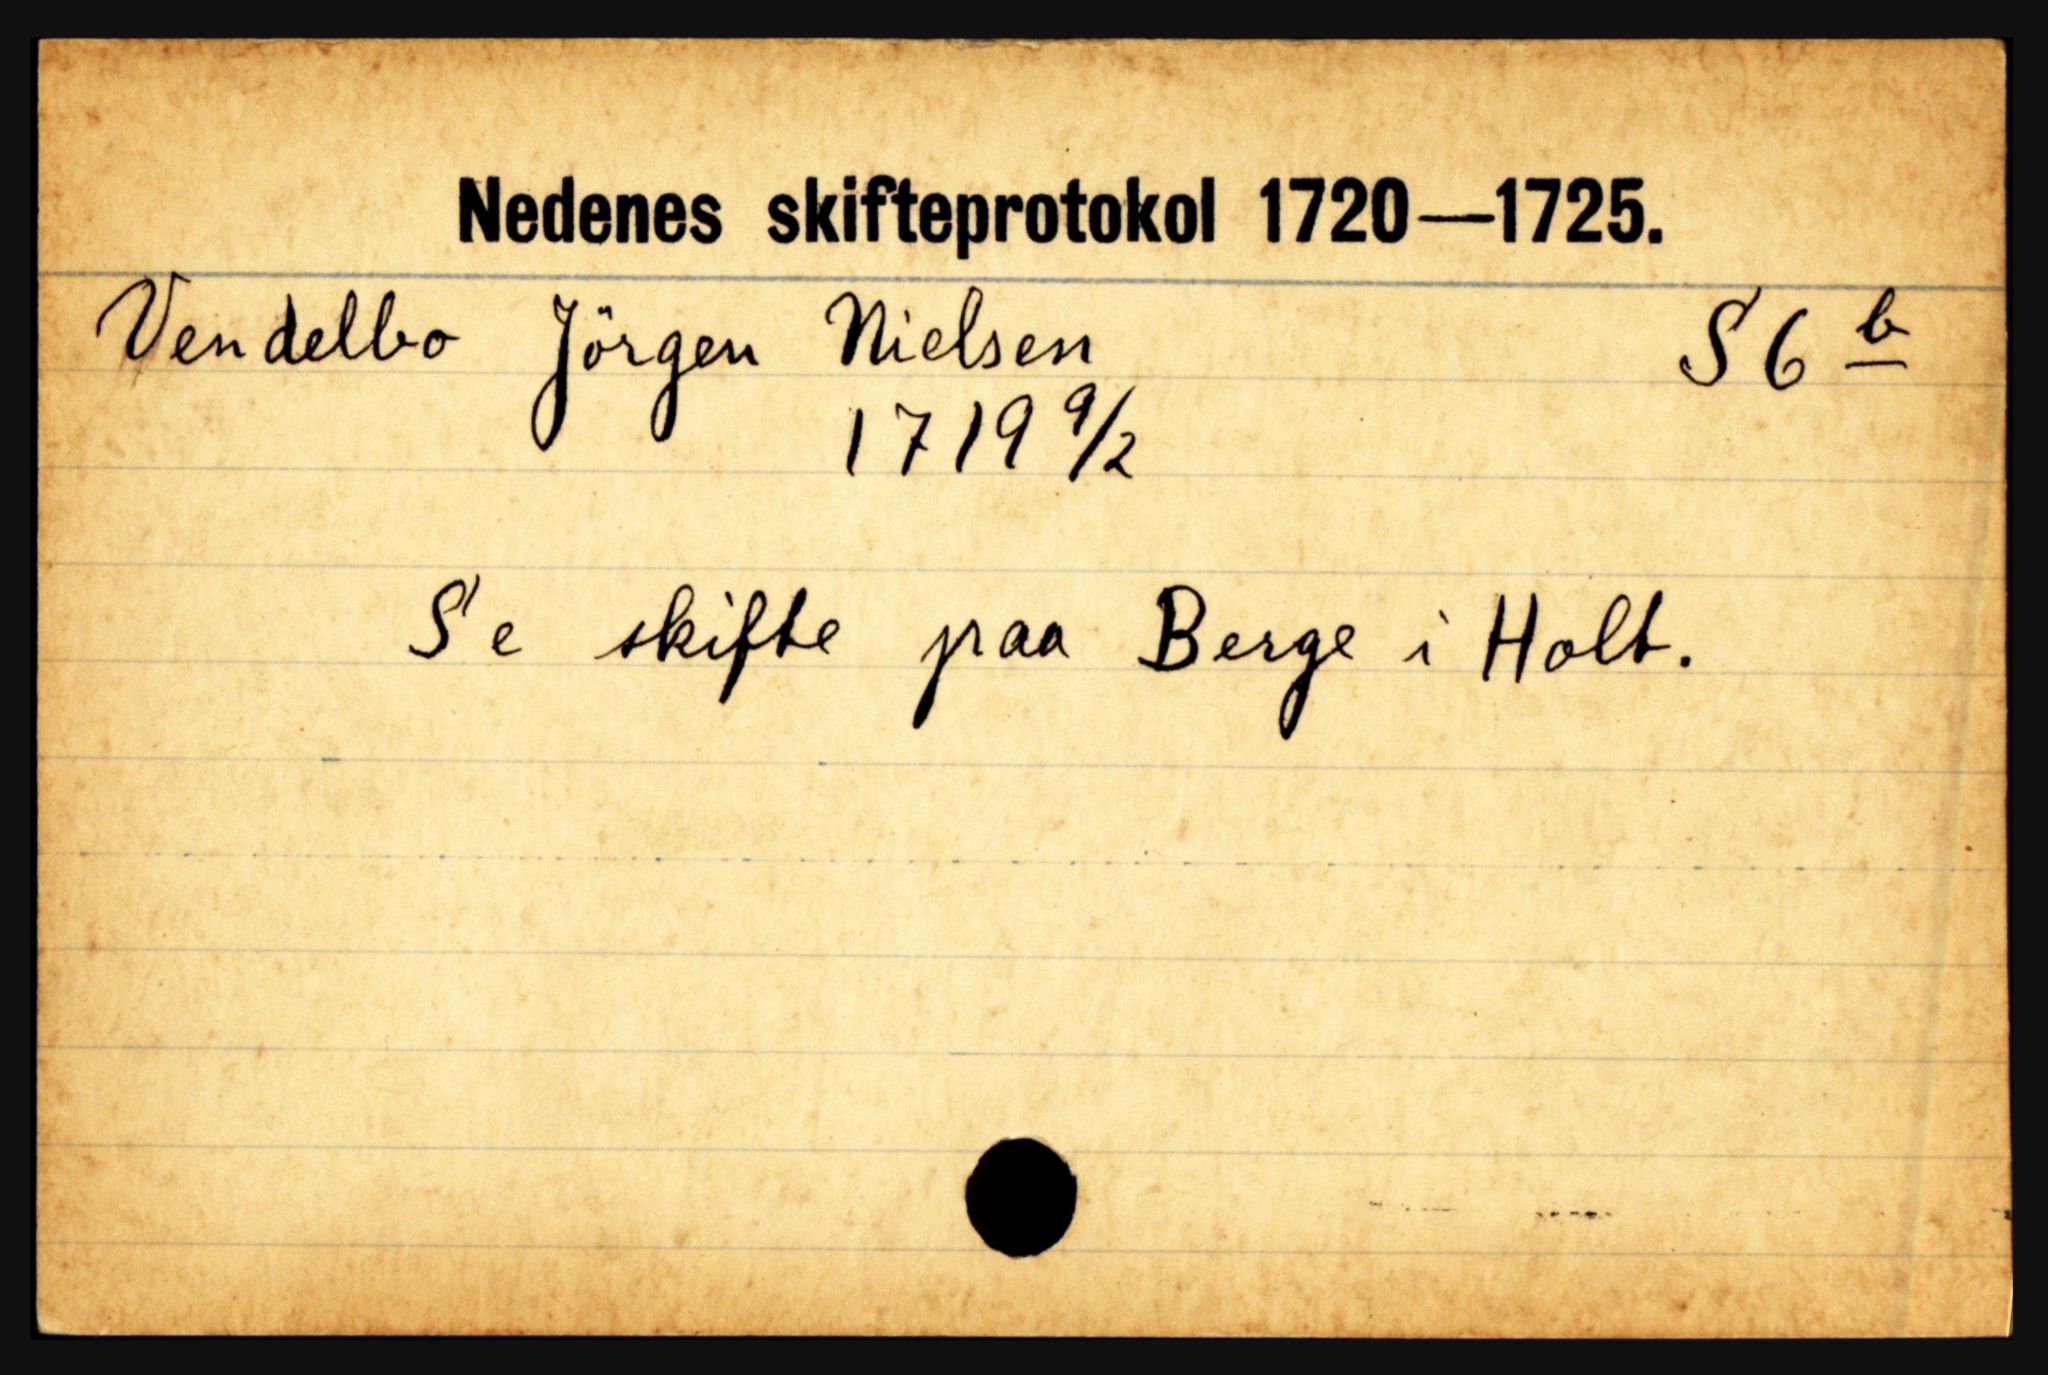 Nedenes skifteprotokol 1720—1725.
Vendelbo Jörgen Nielsen S 6 b
1719 9/2
Se skifte paa Berge i Holt.